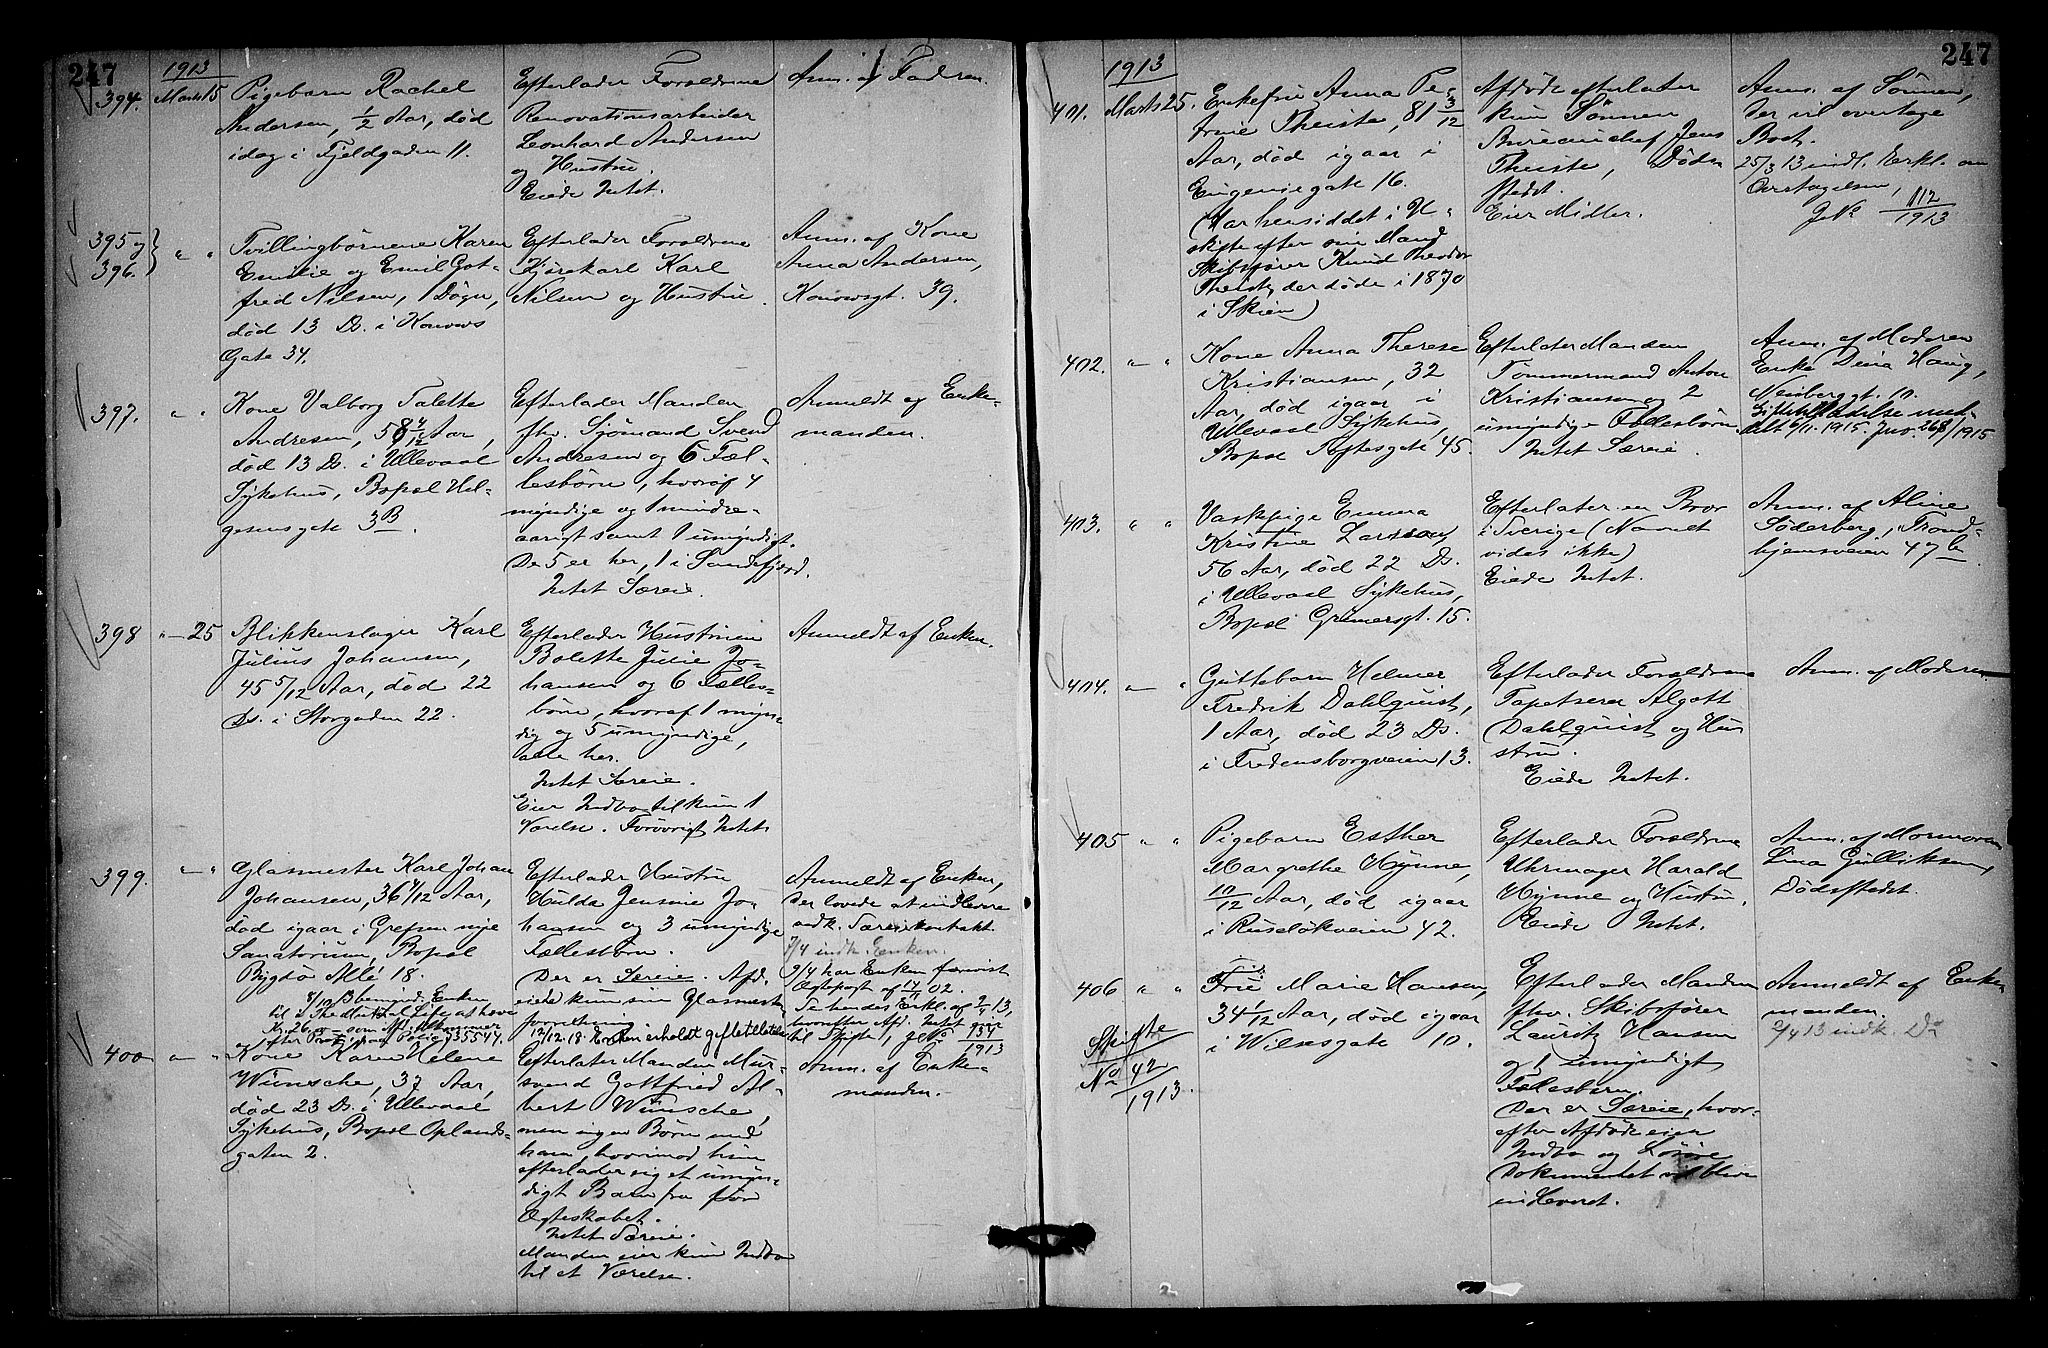 247
1913
394. Marts 15
Pigebarn Rachel
Andersen, 1/2 Aar, død
idag i Fjeldgaden 11.
Efterlader Forældrene
Renovationsarbeider
Leonhard Andersen
og Hustru.
Eiede Intet.
Anm. af Faderen.
395 og
396. " "
Tvillingbørnene Karen
Emilie og Emil Got-
fred Nilsen, 1 Døgn,
død 13 Ds. i Konows
Gate 34.
Efterlader Forældrene
Kjørekarl Karl
Nilsen og Hustru.
Anm. af Kone
Anna Andersen,
Konowsgt. 39.
397. " "
Kone Valborg Talette
Andresen, 58 4/12 Aar,
død 13 Ds. i Ullevaal
Sykehus, Bopæl Hel-
gesensgate 3B.
Efterlader Manden
fhv. Sjømand Svend
Andresen og 6 Fæl-
lesbørn, hvoraf 4
myndige og 1 mindre-
aarigt samt 1 umyndigt.
De 5 er her, 1 i Sandefjord.
Intet Særeie.
Anmeldt og Enke-
manden.
398 " - 25
Blikkenslager Karl
Julius Johansen,
45 5/12 Aar, død 22
Ds. i Storgaden 22.
Efterlader Hustruen
Bolette Julie Jo-
hansen og 6 Fælles-
børn, hvoraf 1 myn-
dig og 5 umyndige,
alle her.
Intet Særeie.
Eier Indbo til kun 1
Værelse. Forøvrigt Intet.
Anmeldt af Enken.
399. - "
Glasmester Karl Johan
Johansen, 36 4/12 Aar,
død igaar i Grefsen nye
Sanatorium, Bopæl
Bygdø Allé 18.
8/12 13 bemynd. Enken
til i The Mutual Life at hæve
Efterlader Hustru
Hulda Jensine Jo-
hansen og 3 umyndige
Fællesbørn.
Der er Særeie. Afd.
eiede kun sin Glasmester-
forretning.
12/12 18 Enken erholdt giftetilladelse
Anmeldt af Enken,
der lovede at indlevere
andk. Særeiekontrakt.
7/4 indk. Enken.
9/4 har Enken foreivist
Ægtepagt af 02.
til Skifte, J.No 137/1913
400 - "
Kone Karen Helene
Wünsche, 37 Aar,
død 23 Ds. i Ullevaal
Sykehus, Bopæl Oplands-
gaten 2.
Efterlater Manden Mur-
svend Gottfried Al-
bert Wünsche,
men ingen Børn med
ham, hvorimod hun
efterlader sig et umyn-
digt Barn fra før
Ægteskabet.
Intet Særeie.
Manden eier kun Indbo
til et Værelse.
Anm. af Enke-
manden.
247
1913
401. Marts 25.
Enkefru Anna Pe-
trine Theiste, 81 3/12
Aar, død igaar i
Eugeniegate 16.
(Har hensiddet i U-
skifte efter sin Mand
Skibsfører Knud Theodor
Theiste, der døde i 1870
i Skien)
Afdøde efterlater
kun Sønnen
Bureauchef Jens
Theiste, Døds-
stedet.
Eier Midler.
Anm. af Sønnen,
der vil overtage
Boet.
25/3 13 indl. Erkl. om
Overtagelsen,
J.No 112/1913
402. - "
Kone Anna Therese
Kristiansen, 32
Aar, død igaar i
Ullevaal Sykehus,
Bopæl Toftesgate 45.
Efterlater Manden
Tømmermand Anton
Kristiansen og 2
umyndige Fællesbørn.
Intet Særeie.
Anm. af Moderen
Enke Dina Haug,
Neuberggt. 10.
Giftetilladelse med-
delt 6/11. 1915. Jnr. 268/1915
403. " "
Vaskepige Emma
Kristine Larsson
56 Aar, død 22 Ds.
i Ullevaal Sykehus,
Bopæl Grünersgt. 15.
Efterlater en Bror
i Sverige (Navnet
vides ikke)
Eiede Intet.
Anm. af Aline
Söderberg, Trond-
hjemsveien 47 b.
404. - "
Guttebarn Helmer
Fredrik Dahlquist,
1 Aar, død 23 Ds.
i Fredensborgveien 13.
Efterlader Forældrene
Tapetserer Algott
Dahlquist og Hu-
stru.
Eiede Intet.
Anm. af Moderen
405 " "
Pigebarn Esther
Margrethe Hynne,
10/12 Aar, død igaar
i Ruseløkveien 42.
Efterlader Forældrene
Uhrmager Harald
Hynne og Hustru.
Eiede Intet.
Anm. af Mormoren
Lina Gulliksen,
Dødsstedet.
406 " "
Skifte
No 42/1913.
Fru Marie Hansen,
34 1/12 Aar, død igaar
i Wilsesgate 10.
Efterlader Manden
fhv. Skibsfører
Lauritz Hansen
og 1 umyndigt
Fællesbarn.
Der er Særeie, hvor-
efter Afdøde eier
Indbo og Løsøre
Dokumentet vil blive
indleveret.
Anmeldt af Enke-
manden.
2/4 13 indk. Do